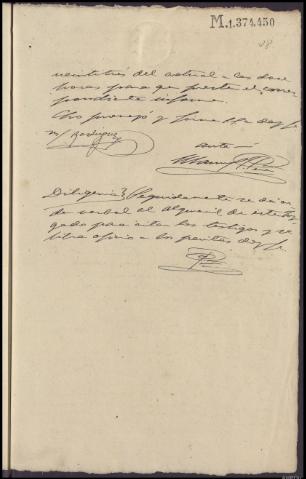 M.1.374.450
veintitrés del actual a las doce
horas para que preste el corres
pondiente informe.
Así proveyó y firma S.S. doy fe
M. Rodriguez
Ante mí
Diligencia / Seguidamente se dió or
den verbal al Alguacil de este Juz
gado para citar los testigos y se
libra oficio a los peritos doy fe